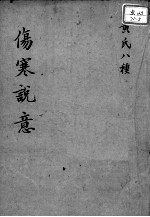 黃氏八種
傷寒說意